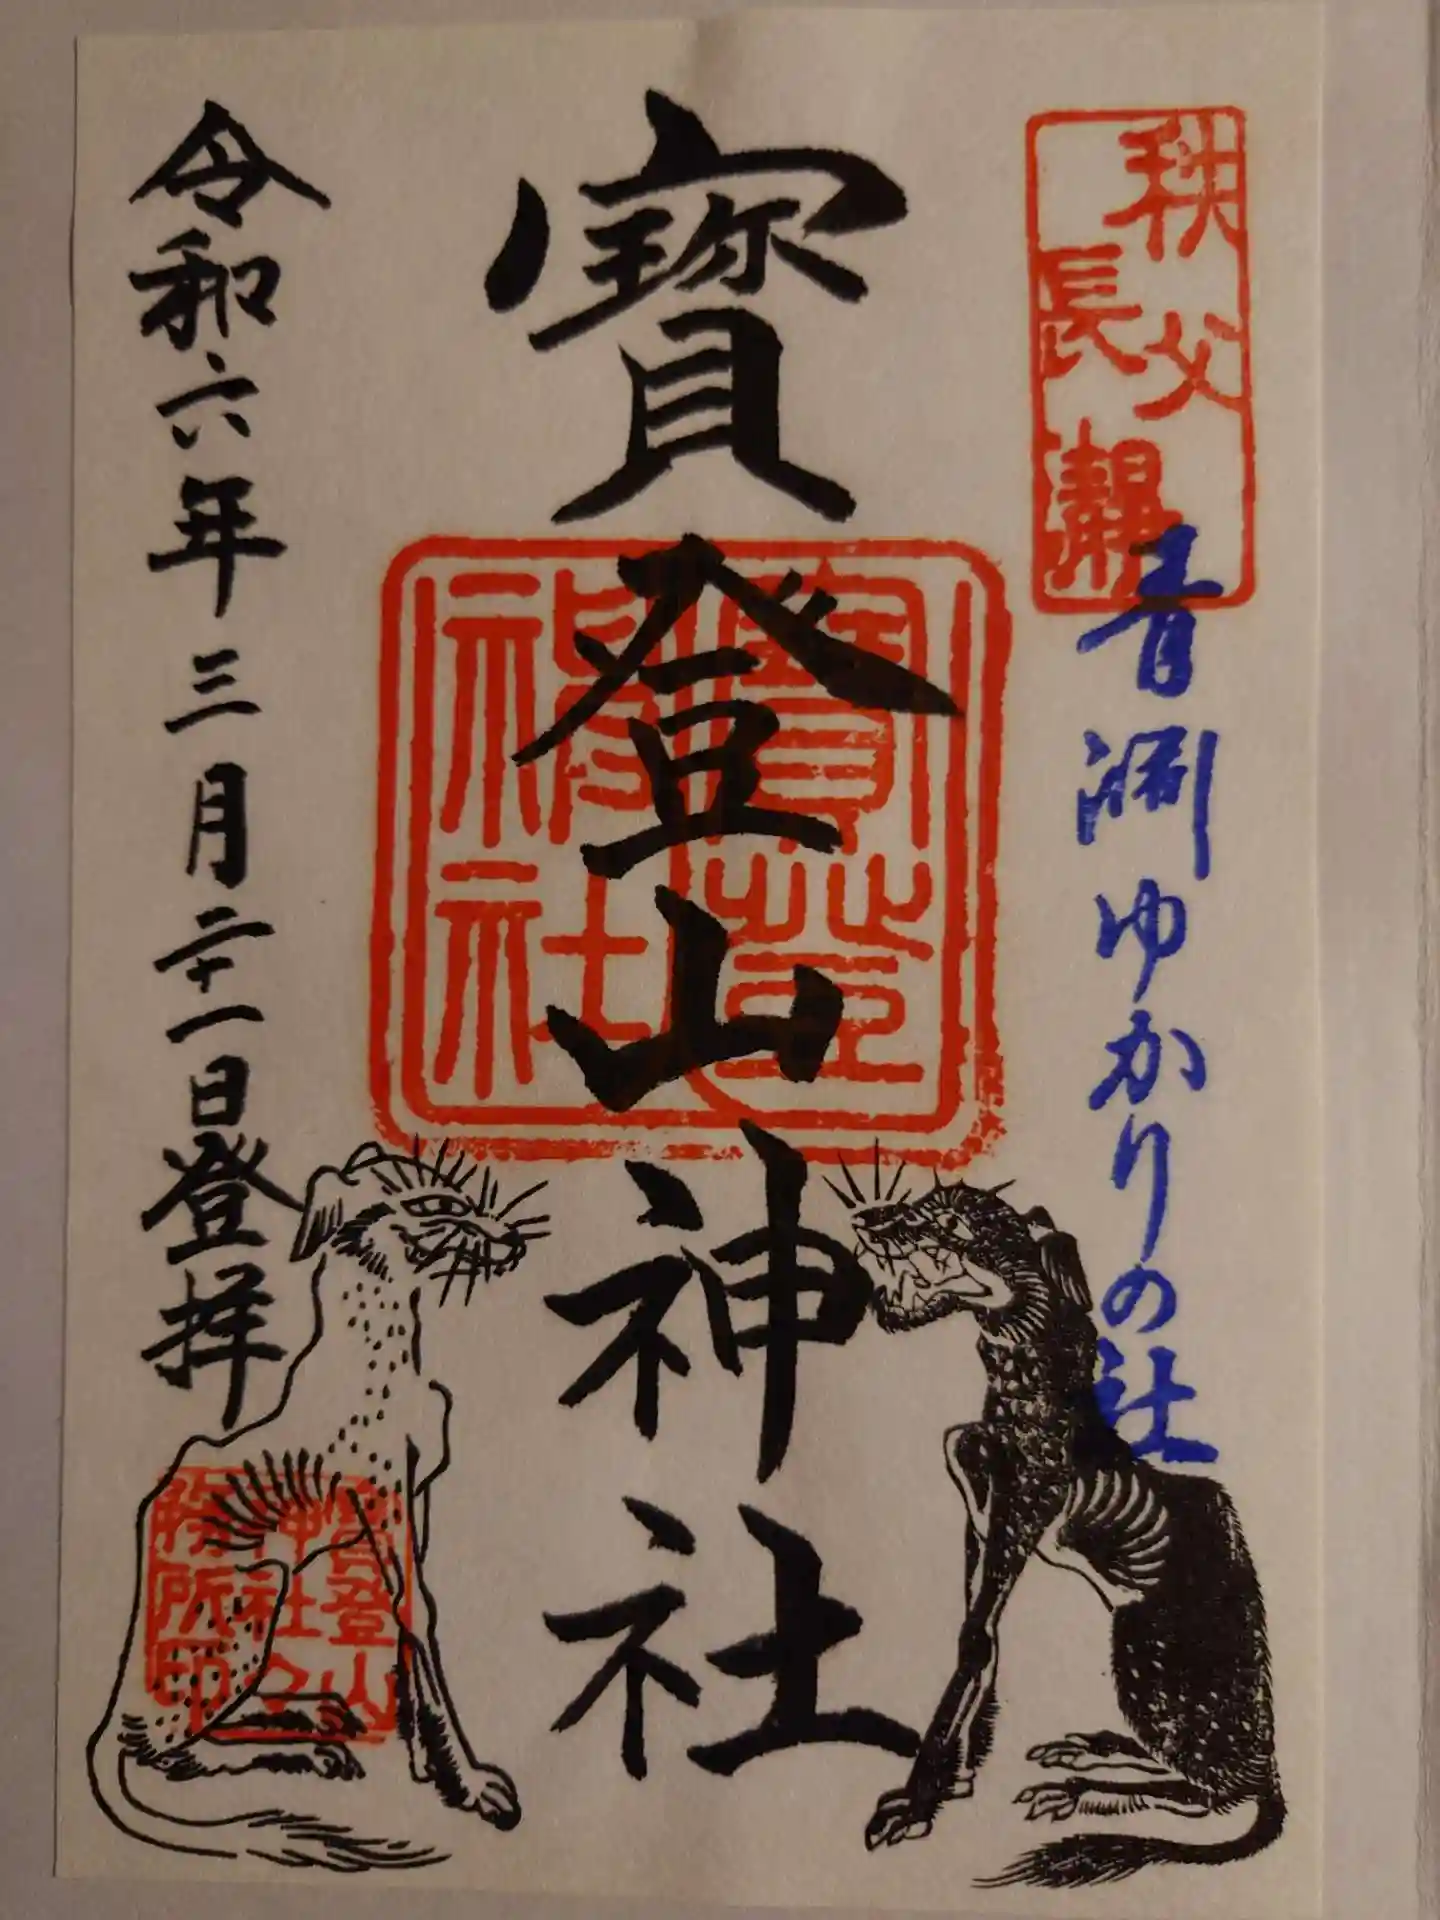 秩父
長瀞
青淵ゆかりの社
寳登山神社
寳登
神社
令和六年三月二十一日登拝
寳登山
神社々
務所印